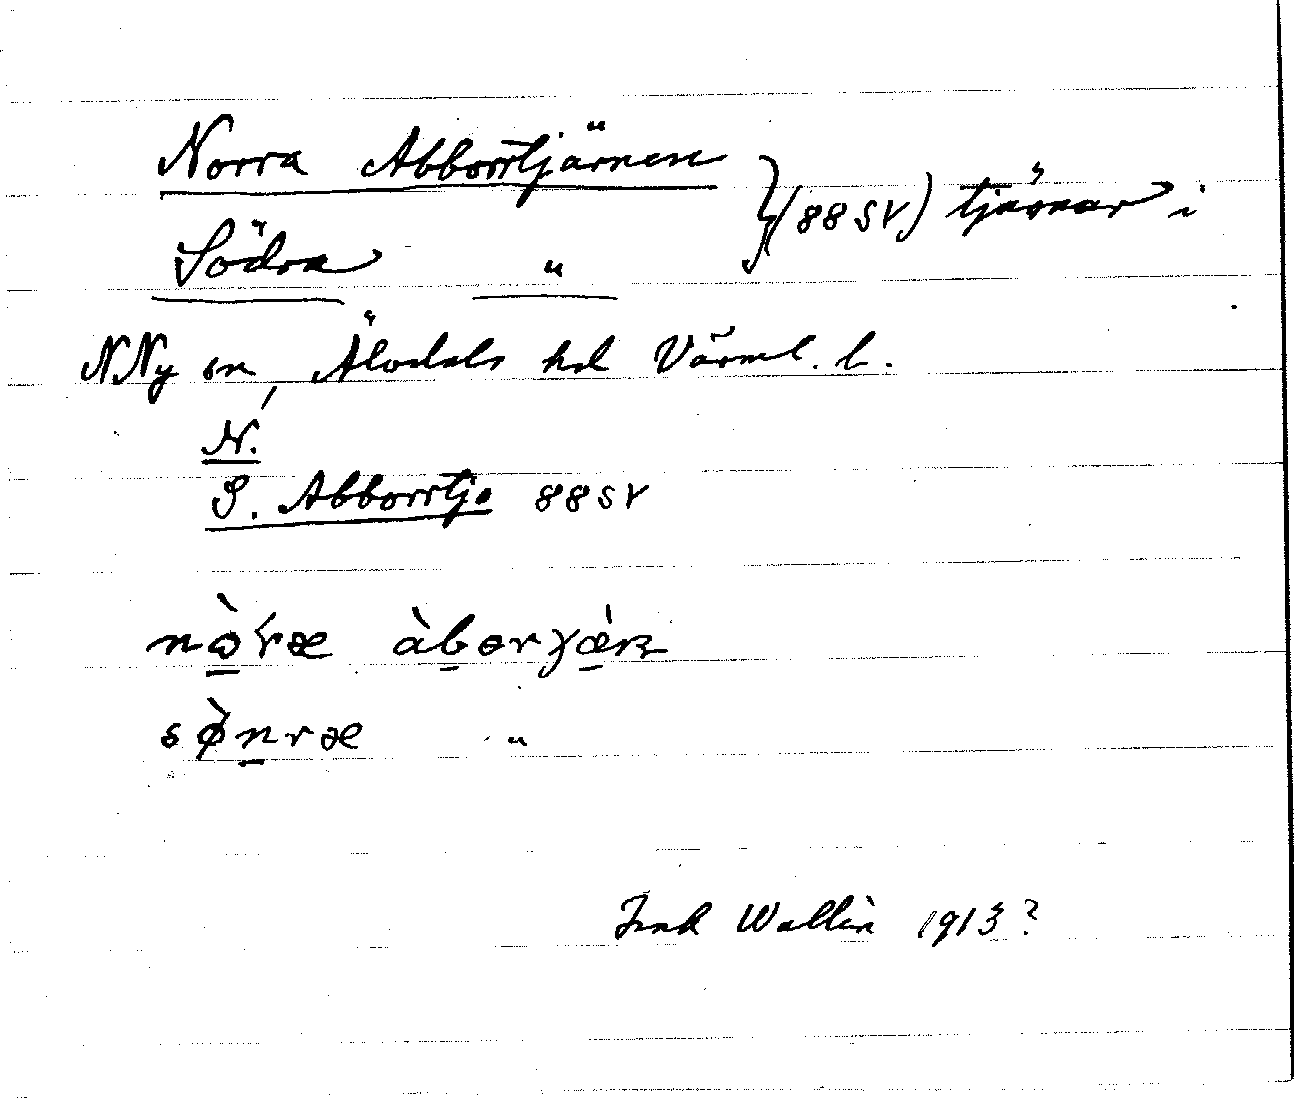 Norra Abborrtjärnen
Södra " } (88 SV) tjärnar i
NNy sn, Älvdals hd Värml. l.
N.
S. Abborrtj. 88 SV
nòra àborjæ̀n
sø̀nræ "
Wallin 1913?